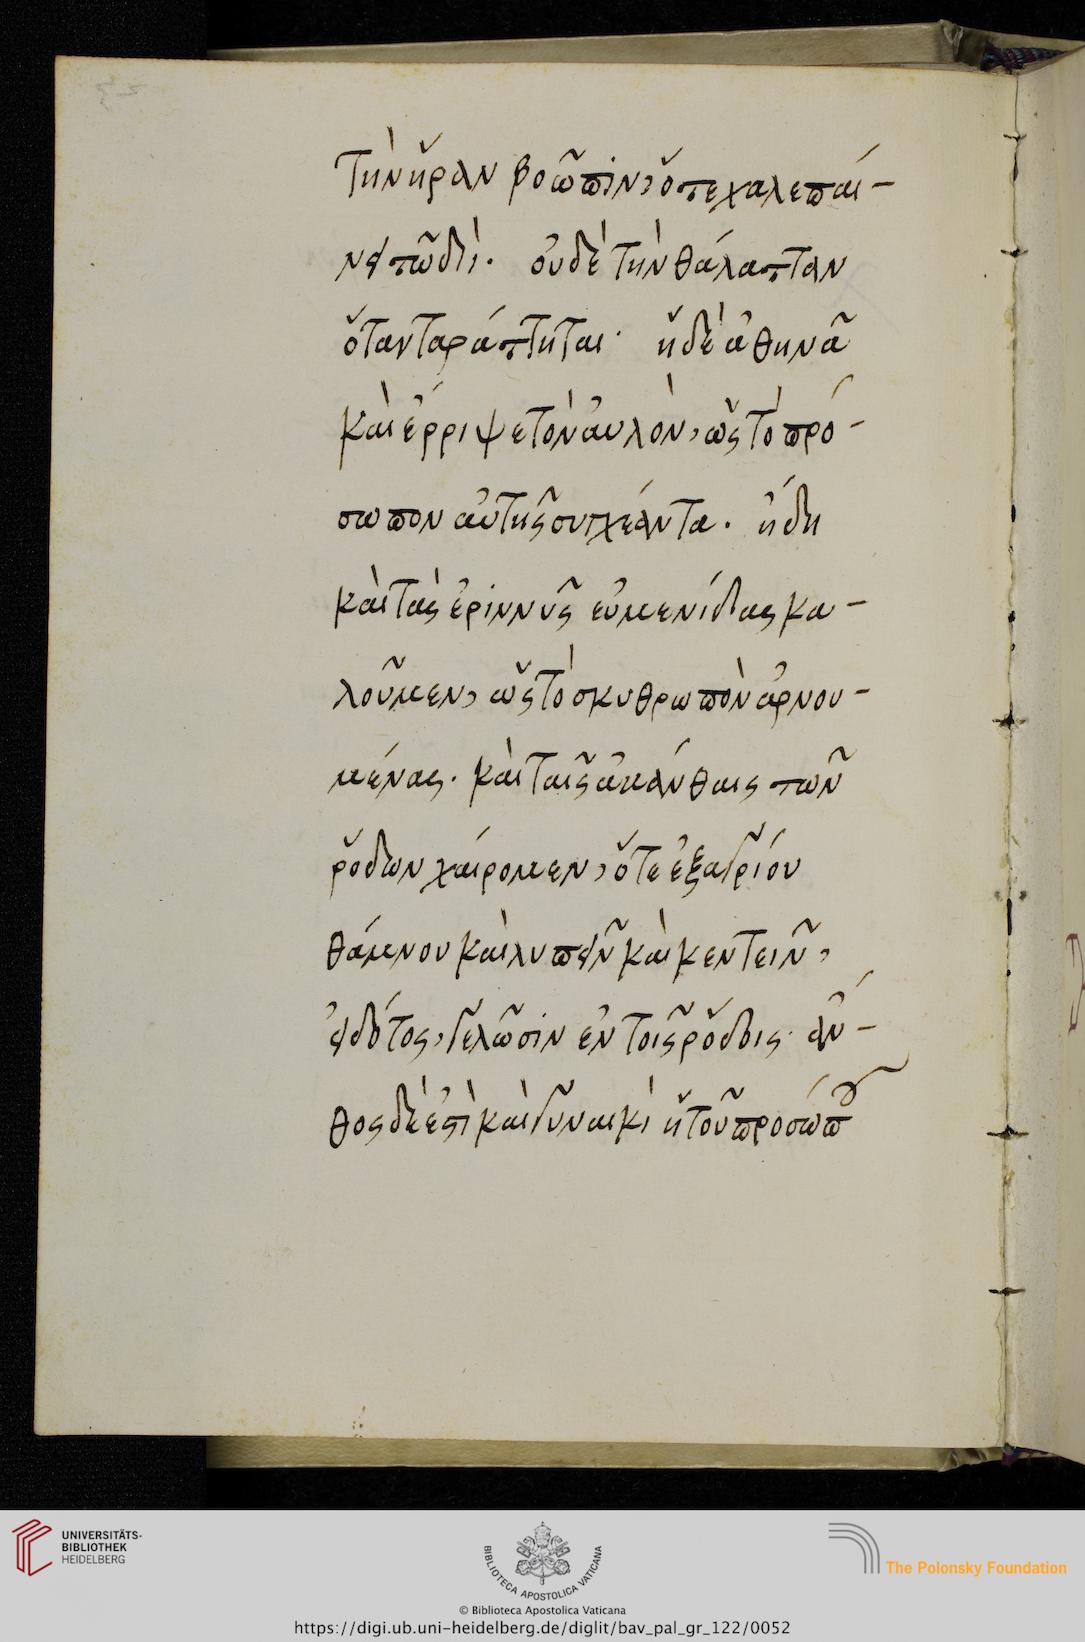 τὴν ἥραν βοῶπιν, ὅτε χαλεπαί-
νει τῷ διΐ. οὐδὲ τὴν θάλατταν
ὅταν ταράττηται· ἡ δὲ ἀθηνᾶ
καὶ ἔρριψε τὸν αὐλὸν, ὡς τὸ πρό-
σωπον αὐτῆς συγχέαντα. ἤδη
καὶ τὰς ἐρινννῦς εὐμενίδας κα-
λοῦμεν, ὡς τὸ σκυθρωπὸν ἀρνου-
μένας. καὶ ταῖς ἀκάνθαις τῶν
ῥόδων χαίρομεν, ὅτι ἐξ ἀγρίου
θάμνου καὶ λυπεῖν καὶ κεντεῖν,
εἰδότος, γελῶσιν ἐν τοῖς ῥόδοις. ἄν-
θος δέ ἐστι καὶ γυναικὶ ἡ τοῦ προσώπου
UNIVERSITÄTS-
BIBLIOTHEK
HEIDELBERG
BIBLIOTECA APOSTOLICA VATICANA
The Polonsky Foundation
© Biblioteca Apostolica Vaticana
https://digi.ub.uni-heidelberg.de/diglit/bav_pal_gr_122/0052